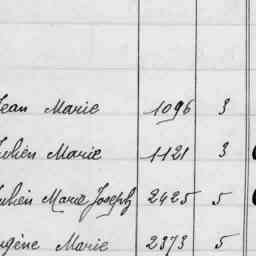 Jean Marie 1096 3
Julien Marie 1121 3
Julien Marie Joseph 2425 5
Eugène Marie 2373 5